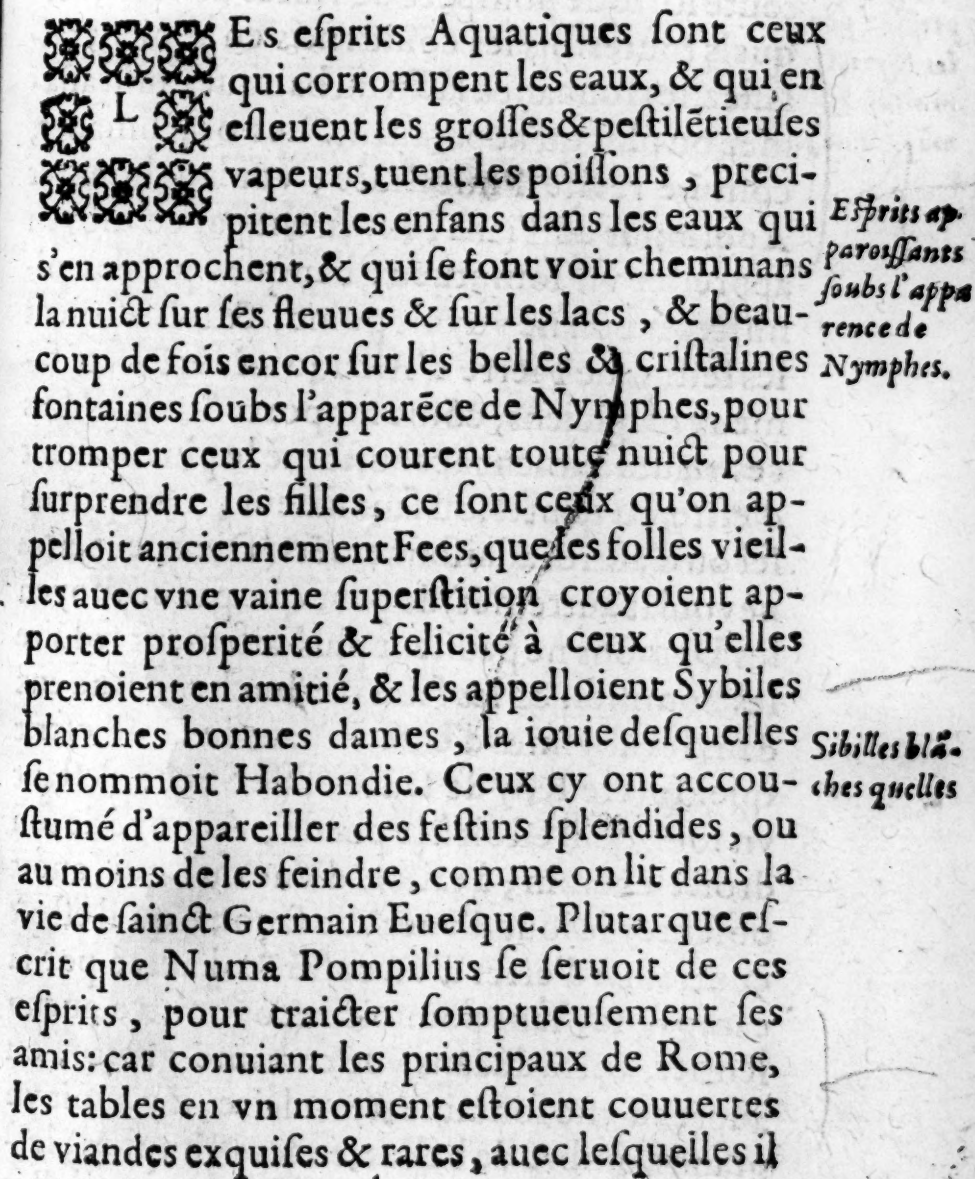 LEs eſprits Aquatiques ſont ceux
qui corrompent les eaux, & qui en
eſleuent les groſſes & peſtilētieuſes
vapeurs, tuent les poiſſons, preci-
pitent les enfans dans les eaux qui
s'en approchent, & qui ſe font voir cheminans
la nuict ſur ſes fleuues & ſur les lacs, & beau-
coup de fois encor ſur les belles & criſtalines
fontaines ſoubs l'apparēce de Nymphes, pour
tromper ceux qui courent toute nuict pour
ſurprendre les filles, ce ſont ceux qu'on ap-
pelloit anciennement Fees, que les folles vieil-
les auec vne vaine ſuperſtition croyoient ap-
porter proſperité & felicité à ceux qu'elles
prenoient en amitié, & les appelloient Sybiles
blanches bonnes dames, la iouie deſquelles
ſe nommoit Habondie. Ceux cy ont accou-
ſtumé d'appareiller des feſtins ſplendides, ou
au moins de les feindre, comme on lit dans la
vie de ſainct Germain Eueſque. Plutarque eſ-
crit que Numa Pompilius ſe ſeruoit de ces
eſprits, pour traicter ſomptueuſement ſes
amis: car conuiant les principaux de Rome,
les tables en vn moment eſtoient couuertes
de viandes exquiſes & rares, auec leſquelles il
Eſprits ap-
paroiſſants
ſoubs l'appa
rence de
Nymphes.
Sibilles blā-
ches quelles